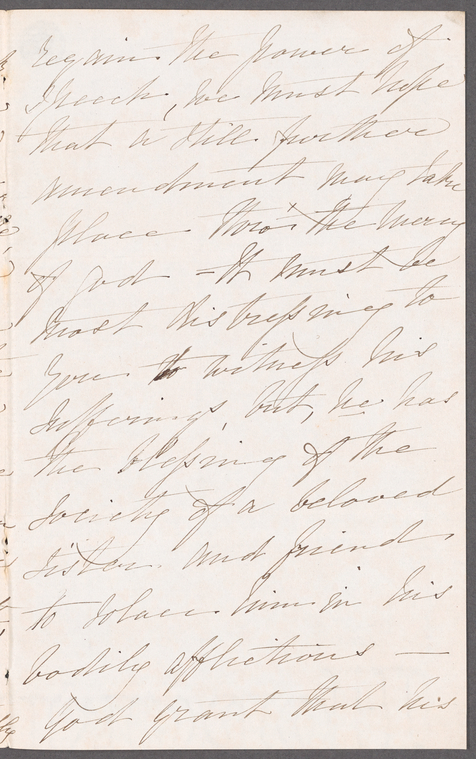 regain the power of
speech, we must hope
that a still further
amendment may take
place thro' the mercy
of God - It must be
most distressing to
you to witness his
sufferings, but, he has
the blessing of the
society of a beloved
sister and friend
to solace him in his
bodily afflictions —
God grant that his